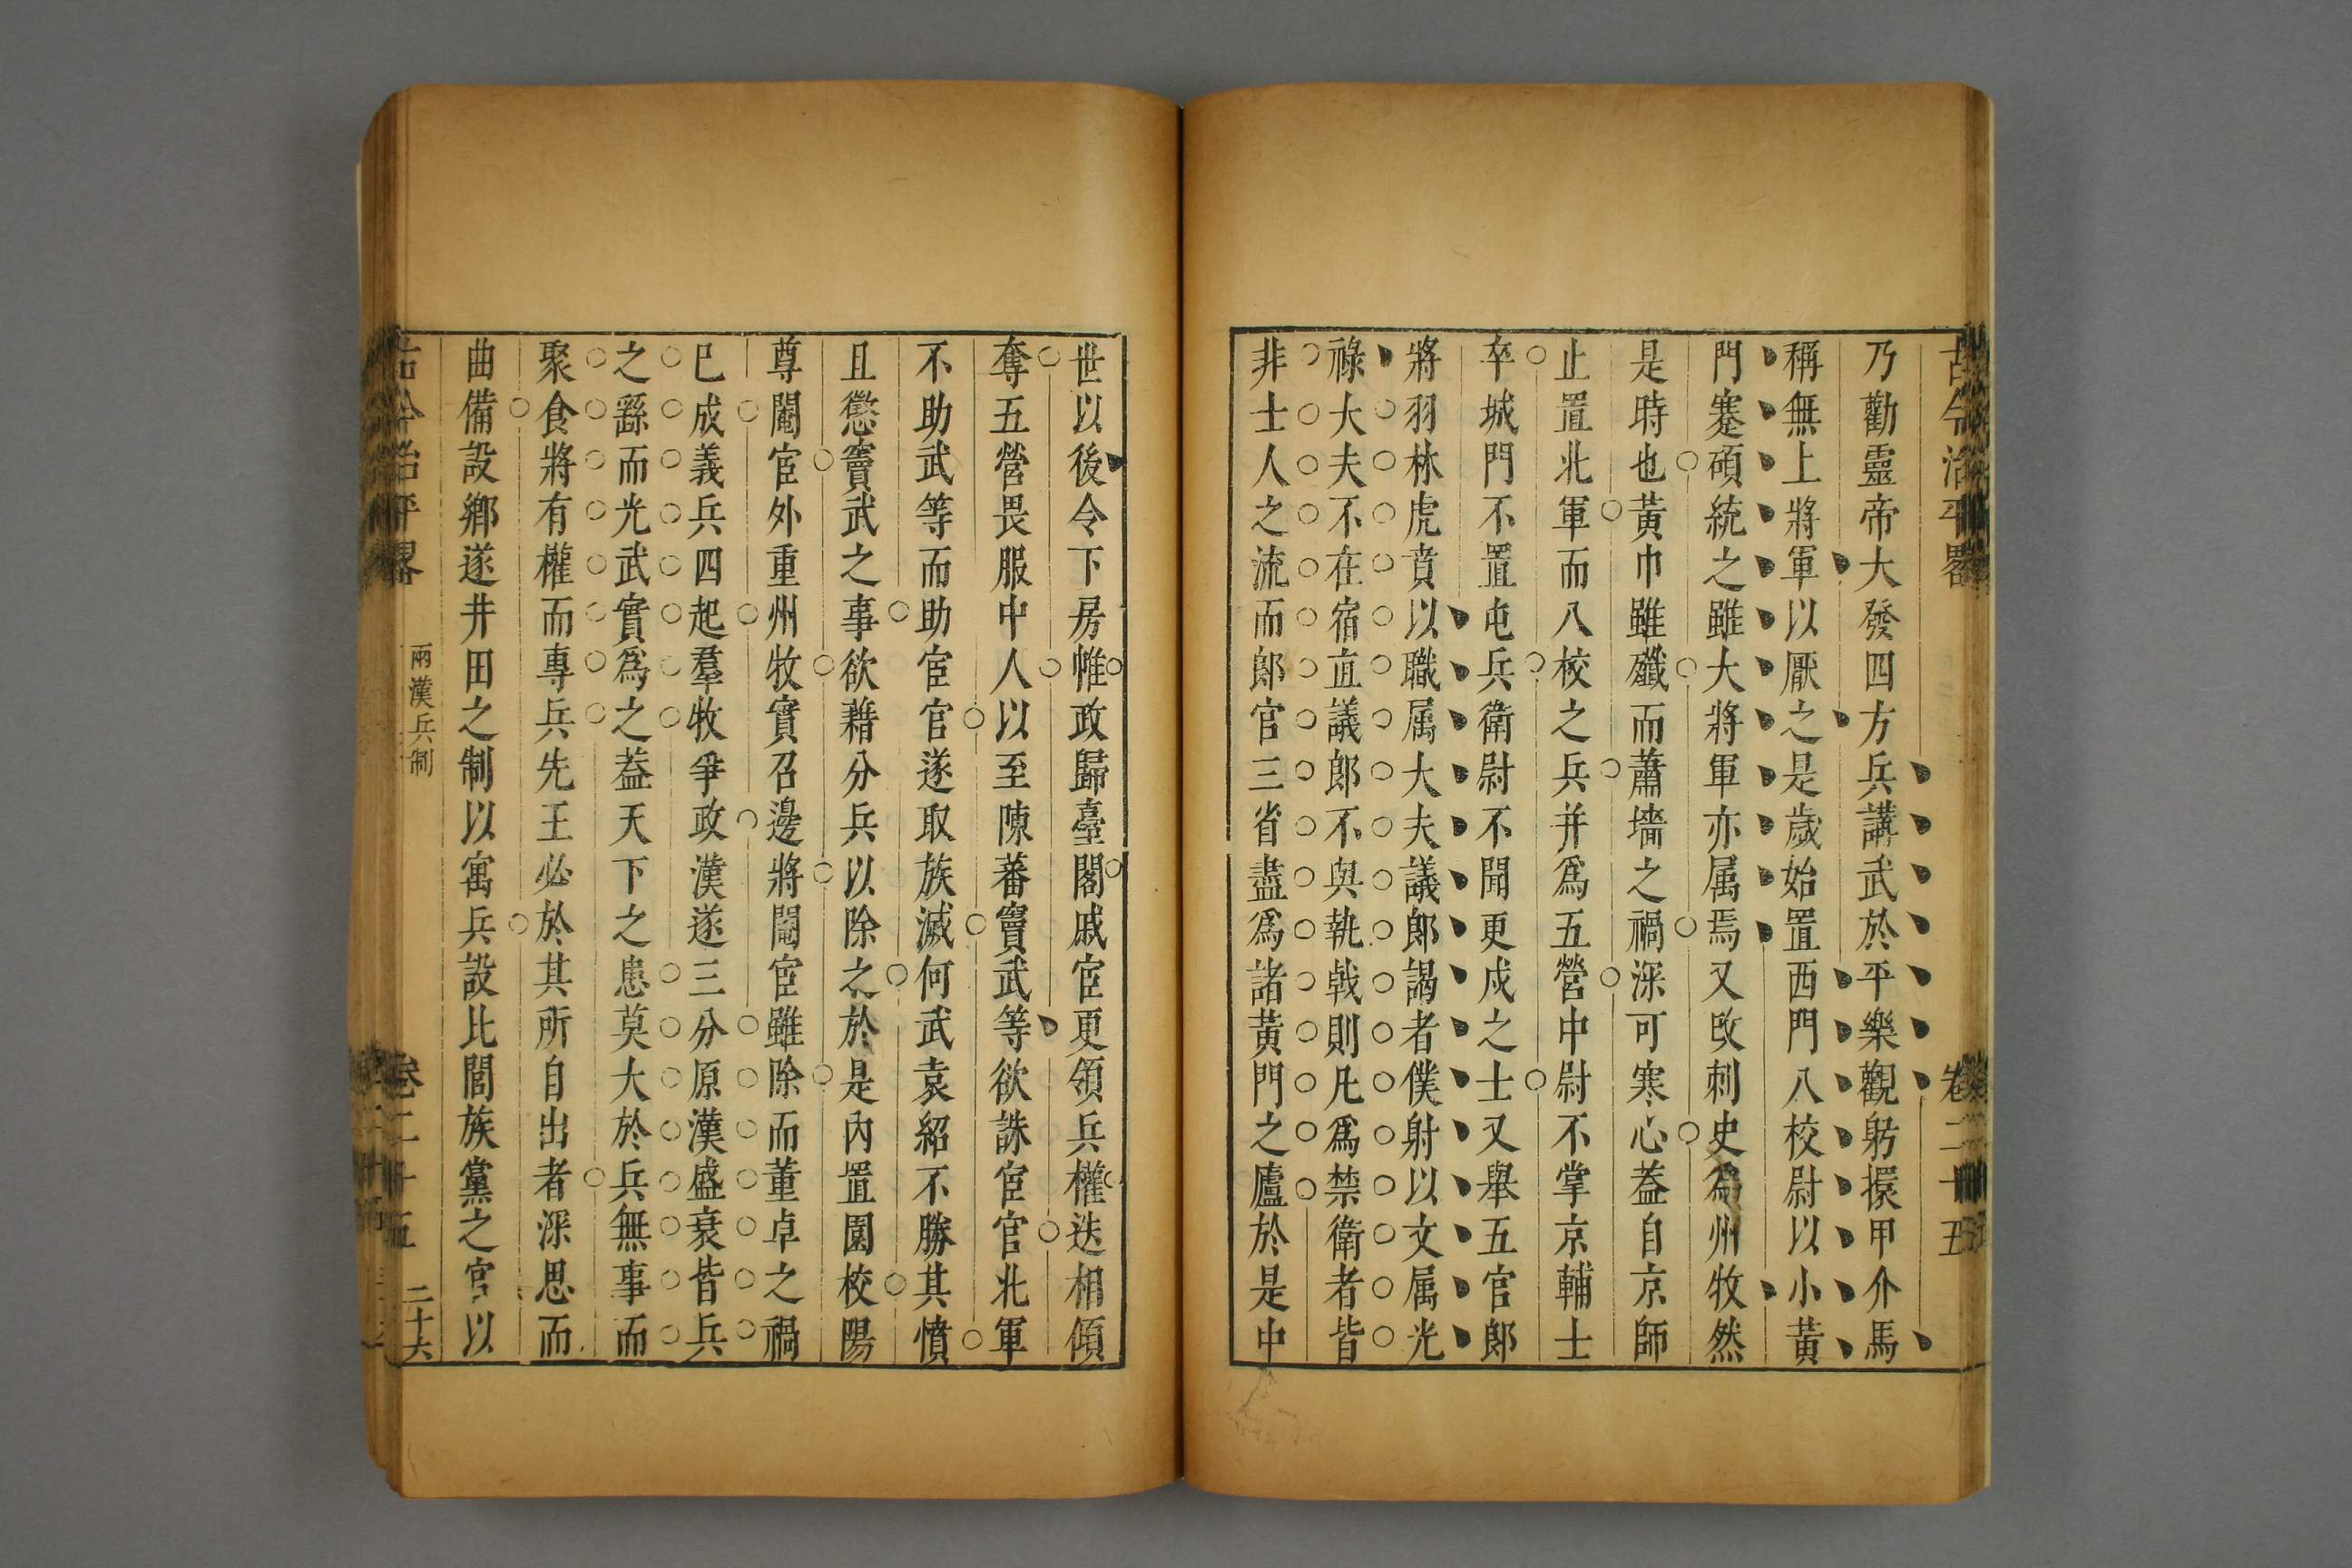 古今治平畧 卷二十五
乃勸靈帝大發四方兵講武於平樂觀躬擐甲介馬
稱無上將軍以厭之是歲始置西門八校尉以小黃
門蹇碩統之雖大將軍亦属焉又改刺史為州牧然
是時也黃巾雖殲而蕭墻之禍深可寒心葢自京師
止置北軍而八校之兵并爲五營中尉不掌京輔士
卒城門不置屯兵衛尉不聞更戍之士又舉五官郎
將羽林虎賁以職属大夫議郎謁者僕射以文属光
祿大夫不在宿直議郎不與執戟則凡爲禁衛者皆
非士人之流而郎官三省盡爲諸黃門之廬於是中
世以後令下房帷政歸臺閣戚宦更領兵權迭相傾
奪五營畏服中人以至陳蕃竇武等欲誅宦官北軍
不助武等而助宦官遂取族滅何武袁紹不勝其憤
且懲竇武之事欲藉分兵以除之於是內置園校陽
尊閹宦外重州牧實召邊將閹宦雖除而董卓之禍
已成義兵四起羣牧爭政漢遂三分原漢盛衰皆兵
之繇而光武實爲之葢天下之患莫大於兵無事而
聚食將有權而專兵先王必於其所自出者深思而
曲備設鄉遂井田之制以寓兵設比閭族黨之官以
古今治平畧 兩漢兵制 卷二十五 二十六